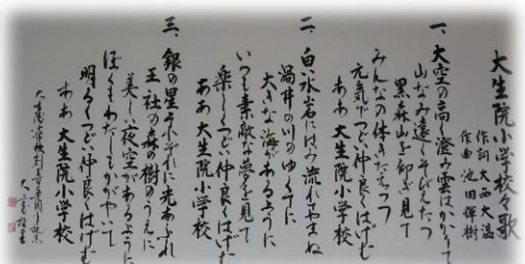 大生院小学校々歌
作詞 大西大温
作曲 池田輝樹
一、大空の高く澄み雲はかかりて
山なみ遠くそびえたつ
黒森山を仰ぎ見て
みんなの体きたえつつ
元気でつどい仲良くはげむ
ああ 大生院小学校
二、白い岩にはみ流れやまぬ
渦井の川のゆくてに
大きな海があるように
いつも素敵な夢を見て
楽しくつどい仲良くはげむ
ああ 大生院小学校
三、銀の星それぞれに光あふれ
王社の森の樹のうえに
美しい夜空があるように
ぼくもわたしもかがやいて
明るくつどい仲良くはげむ
ああ 大生院小学校